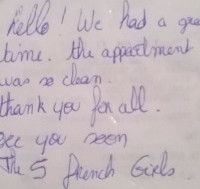 Hello! We had a grea
time. the appartment
was so clean.
thank you for all.
see you soon
The 5 french Girls.